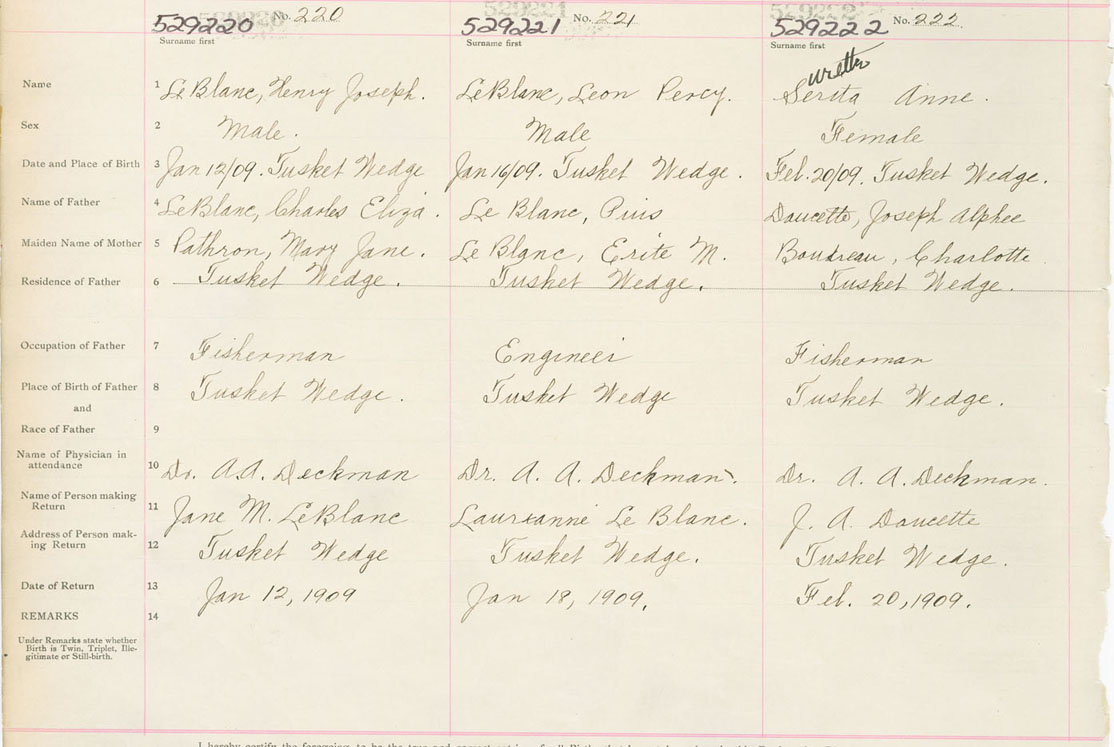 529220 No. 220 529221 No. 221 529222 No. 222
Surname first Surname first Surname first
Name 1 LeBlanc, Henry Joseph. LeBlanc, Leon Percy. Serita Anne.
Sex 2 Male. Male Female
Date and Place of Birth 3 Jan 12/09. Tusket Wedge Jan 16/09. Tusket Wedge. Feb. 20/09. Tusket Wedge.
Name of Father 4 LeBlanc, Charles Eliza. Le Blanc, Pius Doucette, Joseph Alphee
Maiden Name of Mother 5 Pathron, Mary Jane. Le Blanc, Erite M. Boudreau, Charlotte
Residence of Father 6 Tusket Wedge. Tusket Wedge. Tusket Wedge.
Occupation of Father 7 Fisherman Engineer Fisherman
Place of Birth of Father 8 Tusket Wedge. Tusket Wedge Tusket Wedge.
and
Race of Father 9
Name of Physician in
attendance 10 Dr. A.A. Deckman Dr. A. A. Deckman. Dr. A. A. Deckman.
Name of Person making
Return 11 Jane M. LeBlanc Laurianne Le Blanc. J. A. Doucette
Address of Person mak-
ing Return 12 Tusket Wedge Tusket Wedge. Tusket Wedge.
Date of Return 13 Jan 12, 1909 Jan 18, 1909. Feb. 20, 1909.
REMARKS 14
Under Remarks state whether
Birth is Twin, Triplet, Ille-
gitimate or Still-birth.